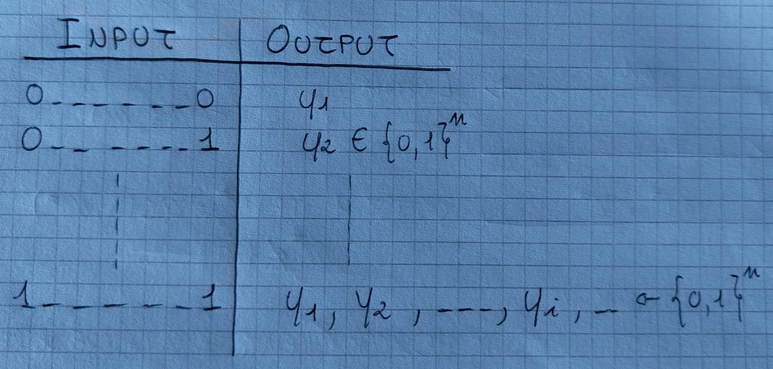 INPUT OUTPUT
0------0 y1
0------1 y2 ∈ {0,1}^n
1------1 y1, y2, ---, yi, — ← {0,1}^n